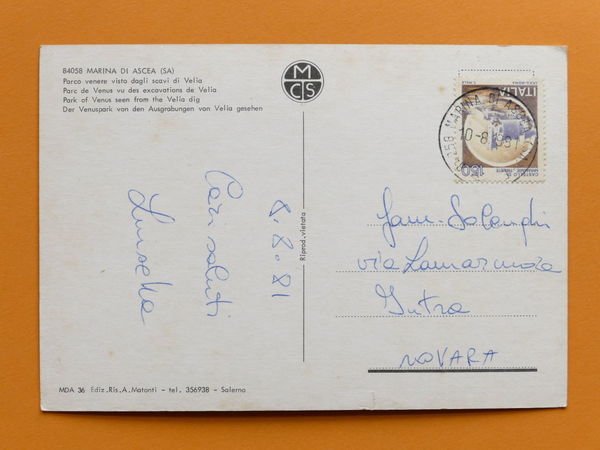 84058 MARINA DI ASCEA (SA)
Parco venere visto dagli scavi di Velia
Parc de Venus vu des excavations de Velia
Park of Venus seen from the Velia dig
Der Venuspark von den Ausgrabungen von Velia gesehen
M
CS
ITALIA
150
MARINA DI ASCEA
10-8
8.8.81
Cari saluti
Riprod. vietata
via Lamarmora
Intra
NOVARA
MDA 36 Ediz. Ris. A. Matonti - tel. 356938 - Salerno